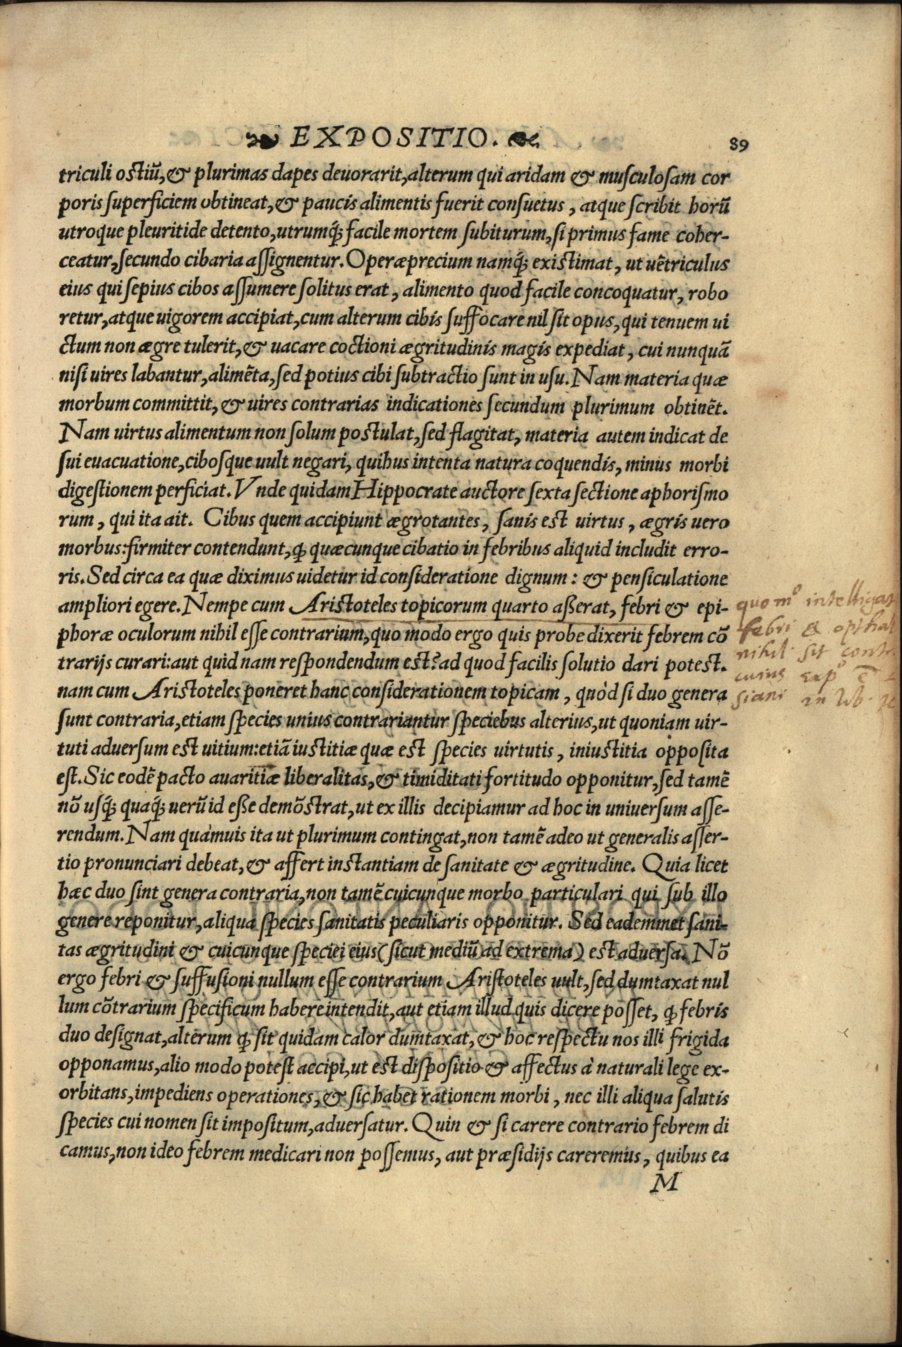 EXPOSITIO. 89
triculi ostiũ, & plurimas dapes deuorarit, alterum qui aridam & musculosam cor
poris superficiem obtineat, & paucis alimentis fuerit consuetus, atque scribit horũ
utroque pleuritide detento, utrumq́; facile mortem subiturum, si primus fame coher-
ceatur, secundo cibaria assignentur. Operæprecium namq́; existimat, ut uẽtriculus
eius qui sepius cibos assumere solitus erat, alimento quod facile concoquatur, robo
retur, atque uigorem accipiat, cum alterum cibis suffocare nil sit opus, qui tenuem ui
ctum non ægre tulerit, & uacare coctioni ægritudinis magis expediat, cui nunquã
nisi uires labantur, alimẽta, sed potius cibi subtractio sunt in usu. Nam materia quæ
morbum committit, & uires contrarias indicationes secundum plurimum obtinẽt.
Nam uirtus alimentum non solum postulat, sed flagitat, materia autem indicat de
sui euacuatione, cibosque uult negari, quibus intenta natura coquendis, minus morbi
digestionem perficiat. Vnde quidam Hippocrate auctore sexta sectione aphorismo
rum, qui ita ait. Cibus quem accipiunt ægrotantes, sanis est uirtus, ægris uero
morbus: firmiter contendunt, q́; quæcunque cibatio in febribus aliquid includit erro-
ris. Sed circa ea quæ diximus uidetur id consideratione dignum: & pensiculatione
ampliori egere. Nempe cum Aristoteles topicorum quarto asserat, febri & epi-
phoræ oculorum nihil esse contrarium, quo modo ergo quis probe dixerit febrem cõ
trarijs curari: aut quid nam respondendum est? ad quod facilis solutio dari potest.
nam cum Aristoteles poneret hanc considerationem topicam, quòd si duo genera
sunt contraria, etiam species unius contrariantur speciebus alterius, ut quoniam uir-
tuti aduersum est uitium: etiã iustitiæ quæ est species uirtutis, iniustitia opposita
est. Sic eodẽ pacto auaritiæ liberalitas, & timiditati fortitudo opponitur, sed tamẽ
nõ usq́; quaq́; uerũ id esse demõstrat, ut ex illis decipiamur ad hoc in uniuersum asse-
rendum. Nam quamuis ita ut plurimum contingat, non tamẽ adeo ut generalis asser-
tio pronunciari debeat, & affert instantiam de sanitate & ægritudine. Quia licet
hæc duo sint genera contraria, non tamẽ cuicunque morbo particulari qui sub illo
genere reponitur, aliqua species sanitatis peculiaris opponitur. Sed eademmet sani-
tas ægritudini & cuicunque speciei eius (sicut mediũ ad extrema) est aduersa. Nõ
ergo febri & suffusioni nullum esse contrarium Aristoteles uult, sed dumtaxat nul
lum cõtrarium specificum habere intendit, aut etiam illud quis dicere posset, q́; febris
duo designat, alterum q́; sit quidam calor dumtaxat, & hoc respectu nos illi frigida
opponamus, alio modo potest accipi, ut est dispositio & affectus à naturali lege ex-
orbitans, impediens operationes, & sic habet rationem morbi, nec illi aliqua salutis
species cui nomen sit impositum, aduersatur. Quin & si carere contrario febrem di
camus, non ideo febrem medicari non possemus, aut præsidijs careremus, quibus ea
M
quomo intelliga
febri &
nihil sit contr
cuius exp
in lib.